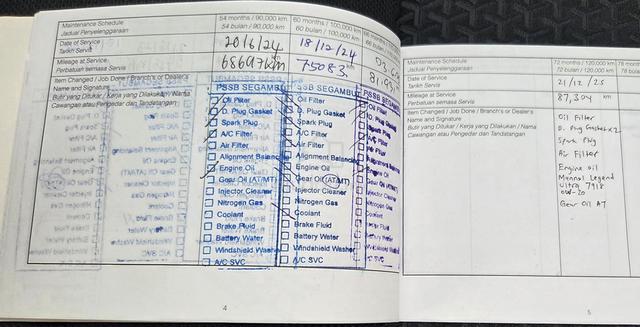 Maintenance Schedule
Jadual Penyelenggaraan
54 months / 90,000 km
54 bulan / 90,000 km
60 months / 100,000 km
60 bulan / 100,000 km
Date of Service
Tarikh Servis
20/6/24
18/12/24
Mileage at Service
Perbatuan semasa Servis
68697km
75083
Item Changed / Job Done / Branch's or Dealer's
Name and Signature
Butir yang Ditukar / Kerja yang Dilakukan / Nama
Cawangan atau Pengedar dan Tandatangan
PSSB SEGAMBUT
Oil Filter
D. Plug Gasket
Spark Plug
A/C Filter
Air Filter
Alignment Balancing
Engine Oil
Gear Oil (AT/MT)
Injector Cleaner
Nitrogen Gas
Coolant
Brake Fluid
Battery Water
Windshield Washer
A/C SVC
PSSB SEGAMBUT
Oil Filter
D. Plug Gasket
Spark Plug
A/C Filter
Air Filter
Alignment Balancing
Engine Oil
Gear Oil (AT/MT)
Injector Cleaner
Nitrogen Gas
Coolant
Brake Fluid
Battery Water
Windshield Washer
A/C SVC
PSSB SEGAMBUT
Oil Filter
D. Plug Gasket
Spark Plug
A/C Filter
Air Filter
Alignment
Engine Oil
Gear Oil
Injector Cleaner
Nitrogen Gas
Coolant
Brake Fluid
Battery Water
Windshield Washer
A/C SVC
4
Maintenance Schedule
Jadual Penyelenggaraan
72 months / 120,000 km
72 bulan / 120,000 km
78
78 b
Date of Service
Tarikh Servis
21/12/25
Mileage at Service
Perbatuan semasa Servis
87,304 km
Item Changed / Job Done / Branch's or Dealer's
Name and Signature
Butir yang Ditukar / Kerja yang Dilakukan / Nama
Cawangan atau Pengedar dan Tandatangan
Oil Filter
D. Plug Gasket x2
Spark Plug
Air Filter
Engine oil
Mannol Legend
Ultra 7918
0W-20
Gear Oil AT
5